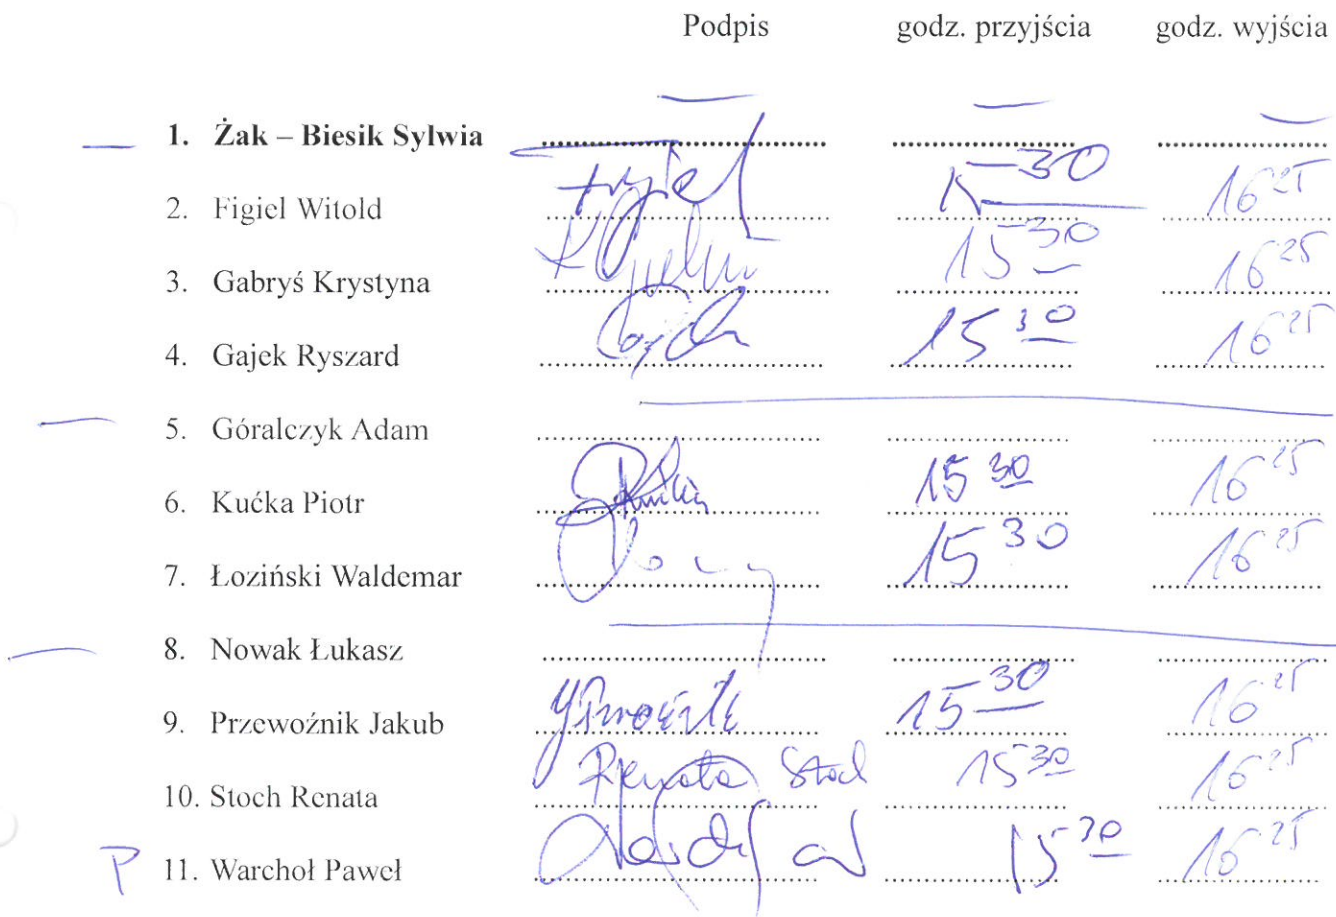 Podpis godz. przyjścia godz. wyjścia
— 1. Żak – Biesik Sylwia — — —
2. Figiel Witold Figiel 15 30 16 25
3. Gabryś Krystyna 15 30 16 25
4. Gajek Ryszard 15 30 16 25
— 5. Góralczyk Adam
6. Kućka Piotr 15 30 16 25
7. Łoziński Waldemar 15 30 16 25
— 8. Nowak Łukasz
9. Przewoźnik Jakub 15 30 16 25
10. Stoch Renata Renata Stoch 15 30 16 25
P 11. Warchoł Paweł 15 30 16 25